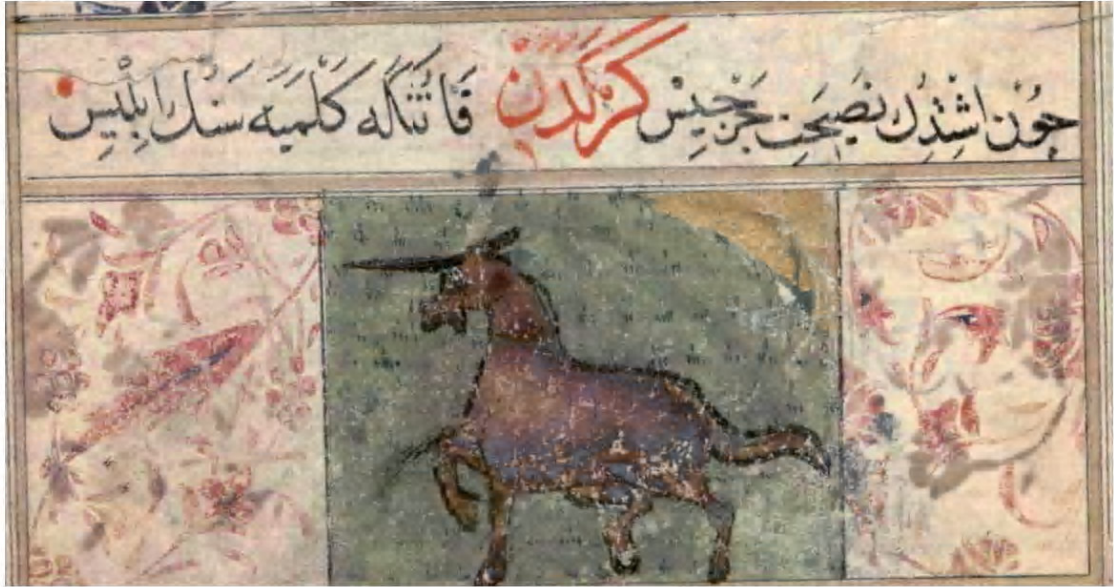 چُونْ اِشِتْدِڭْ نَصِيحَتِ جَرْجِيسْ كَرْكَدَنْ قَاتُڭَه كَلْمَيَه سَنُڭْ اِبْلِيسِ